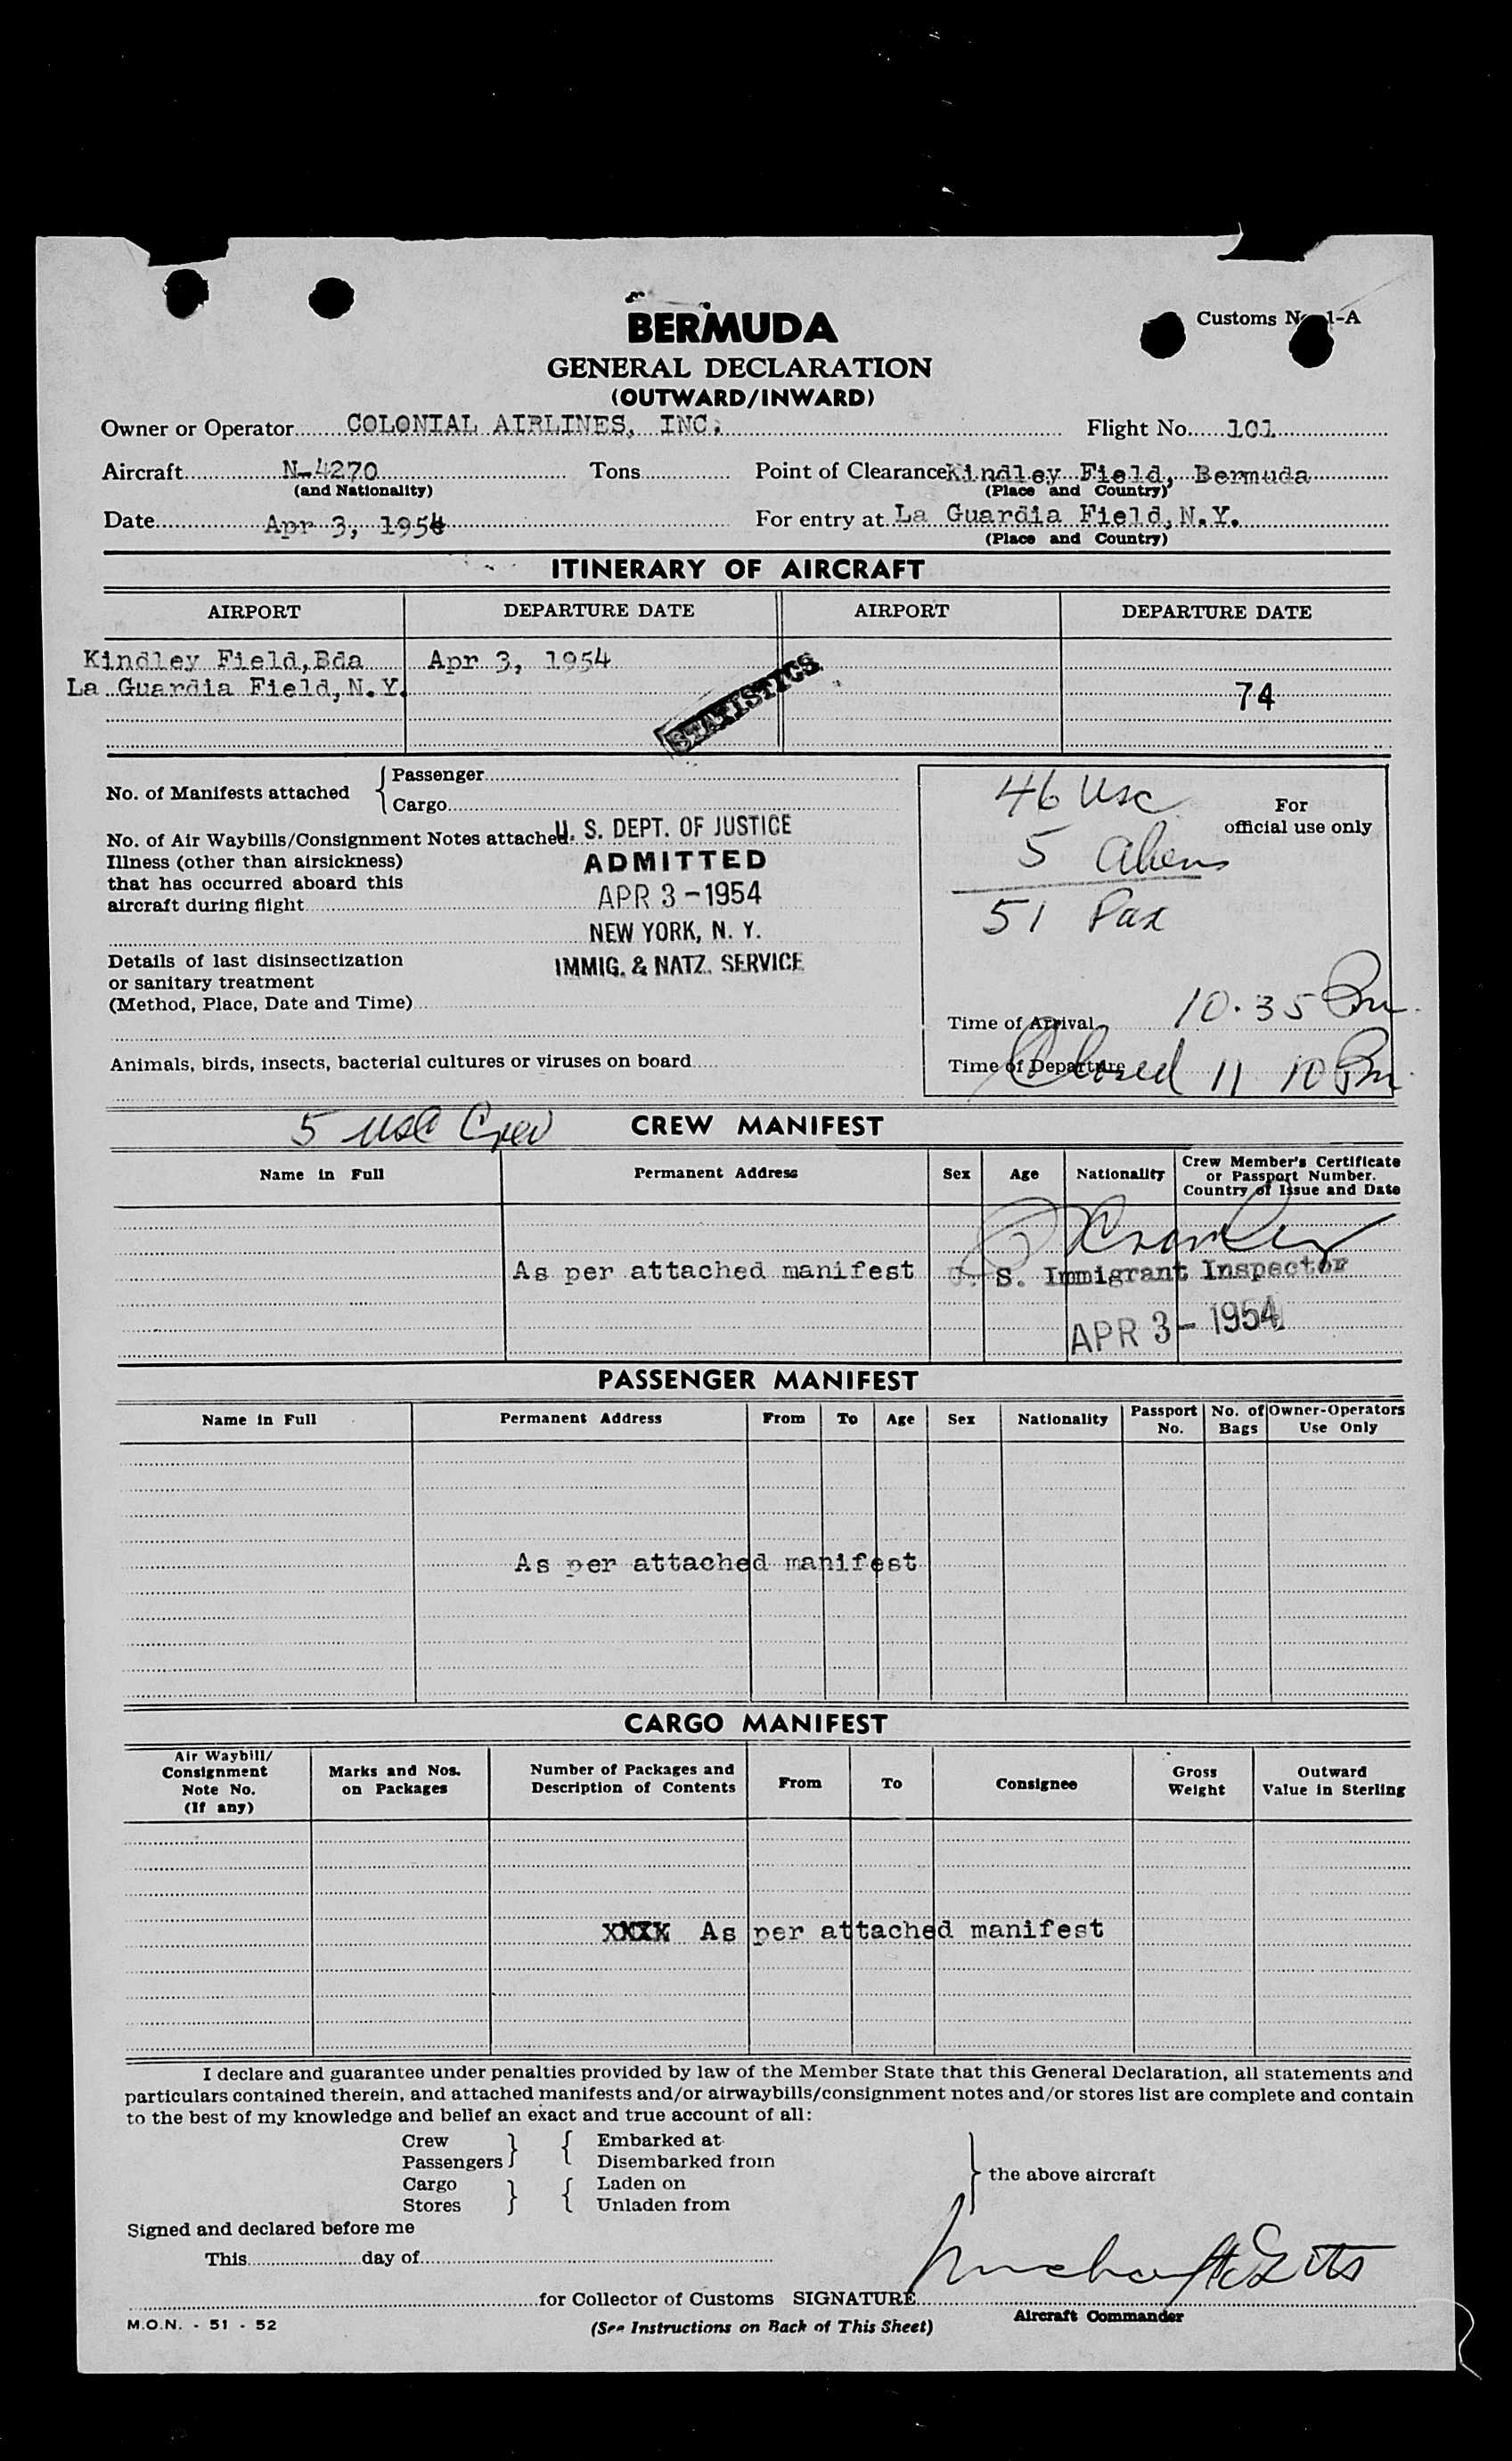 Customs No. 1-A
BERMUDA
GENERAL DECLARATION
(OUTWARD/INWARD)
Owner or Operator COLONIAL AIRLINES, INC. Flight No. 101
Aircraft N-4270 Tons Point of Clearance Kindley Field, Bermuda
(and Nationality) (Place and Country)
Date Apr 3, 1954 For entry at La Guardia Field, N.Y.
(Place and Country)
ITINERARY OF AIRCRAFT
AIRPORT DEPARTURE DATE AIRPORT DEPARTURE DATE
Kindley Field, Bda Apr 3, 1954
La Guardia Field, N.Y. 74
STATISTICS
No. of Manifests attached { Passenger
Cargo
46 USC
For
official use only
5 Aliens
51 Pax
No. of Air Waybills/Consignment Notes attached
U. S. DEPT. OF JUSTICE
ADMITTED
APR 3 - 1954
NEW YORK, N. Y.
IMMIG. & NATZ. SERVICE
Illness (other than airsickness)
that has occurred aboard this
aircraft during flight
Details of last disinsectization
or sanitary treatment
(Method, Place, Date and Time)
Time of Arrival 10.35 Pm
Animals, birds, insects, bacterial cultures or viruses on board
Time of Departure Closed 11 10 Pm
5 USC Crew
CREW MANIFEST
Name in Full Permanent Address Sex Age Nationality Crew Member's Certificate
or Passport Number.
Country of Issue and Date
As per attached manifest U. S. Immigrant Inspector
APR 3 - 1954
PASSENGER MANIFEST
Name in Full Permanent Address From To Age Sex Nationality Passport No. No. of Bags Owner-Operators Use Only
As per attached manifest
CARGO MANIFEST
Air Waybill/
Consignment
Note No.
(If any) Marks and Nos.
on Packages Number of Packages and
Description of Contents From To Consignee Gross
Weight Outward
Value in Sterling
XXXX As per attached manifest
I declare and guarantee under penalties provided by law of the Member State that this General Declaration, all statements and
particulars contained therein, and attached manifests and/or airwaybills/consignment notes and/or stores list are complete and contain
to the best of my knowledge and belief an exact and true account of all:
Crew } { Embarked at
Passengers Disembarked from
Cargo } { Laden on
Stores Unladen from
} the above aircraft
Signed and declared before me
This day of
for Collector of Customs SIGNATURE
Aircraft Commander
M.O.N. - 51 - 52
(See Instructions on Back of This Sheet)